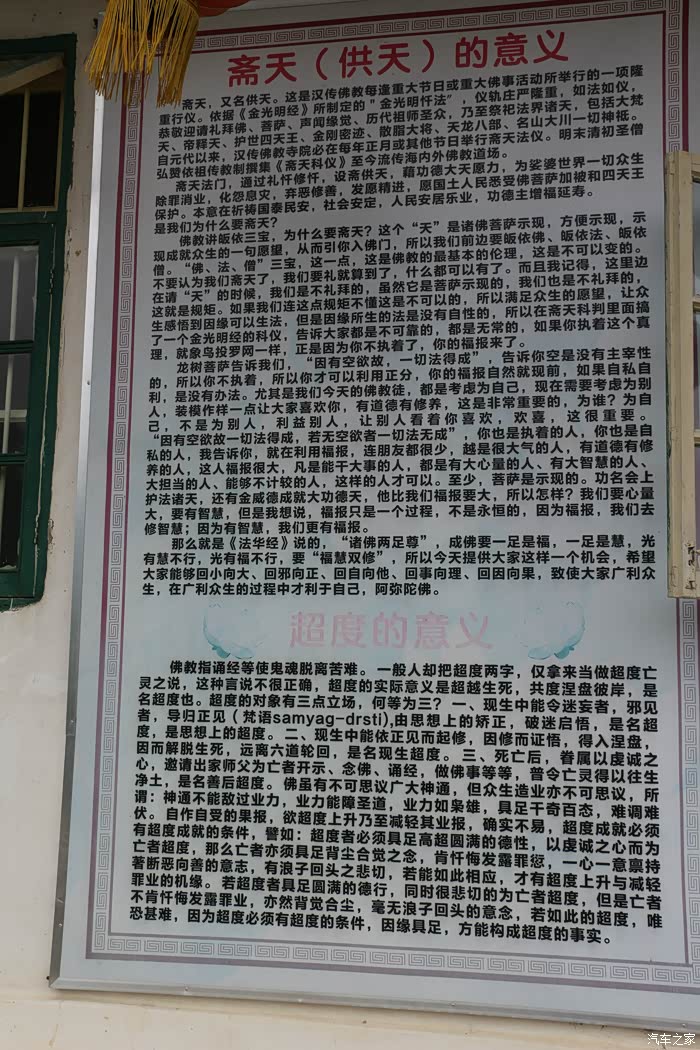 斋天（供天）的意义
斋天，又名供天。这是汉传佛教每逢重大节日或重大佛事活动所举行的一项隆
重行仪。依据《金光明经》所制定的＂金光明忏法＂，仪轨庄严隆重，如法如仪，
恭敬迎请礼拜佛、菩萨、声闻缘觉、历代祖师圣众，乃至祭祀法界诸天，包括大梵
天、帝释天、护世四天王、金刚密迹、散脂大将、天龙八部、名山大川一切神祇。
自元代以来，汉传佛教寺院必在每年正月或其他节日举行斋天法仪。明末清初圣僧
弘赞依祖传教制撰集《斋天科仪》至今流传海内外佛教道场。
斋天法门，通过礼忏修忏，设斋供天，藉功德大天愿力，为娑婆世界一切众生
除罪消业，化怨息灾，弃恶修善，发愿精进，愿国土人民悉受佛菩萨加被和四天王
保护。本意在祈祷国泰民安，社会安定，人民安居乐业，功德主增福延寿。
是我们为什么要斋天？
佛教讲皈依三宝，为什么要斋天？这个“天”是诸佛菩萨示现，方便示现，示
现成就众生的一句愿望，从而引你入佛门，所以我们前边要皈依佛、皈依法、皈依
僧。“佛、法、僧”三宝，这一点，这是佛教的最基本的伦理，这是不可以变的。
不要认为我们斋天了，我们要礼就算到了，什么都可以有了。而且我记得，这里边
在请“天”的时候，我们是不礼拜的，虽然它是菩萨示现的，我们也是不礼拜的，
这就是规矩。如果我们连这点规矩不懂这是不可以的，所以满足众生的愿望，让众
生感悟到因缘可以生法，但是因缘所生的法是没有自性的，所以在斋天科判里面搞
了一个金光明经的科仪，告诉大家都是不可靠的，都是无常的，如果你执着这个真
理，就象鸟投罗网一样，正是因为你不执着了，你的福报来了。
龙树菩萨告诉我们，“因有空欲故，一切法得成”，告诉你空是没有主宰性
的，所以你不执着，所以你才可以利用正分，你的福报自然就现前，如果自私自
利，是没有办法。尤其是我们今天的佛教徒，都是考虑为自己，现在需要考虑为别
人，装模作样一点让大家喜欢你，有道德有修养，这是非常重要的，为谁？为自
己，不是为别人，利益别人，让别人看着你喜欢，欢喜，这很重要。
“因有空欲故一切法得成，若无空欲者一切法无成”，你也是执着的人，你也是自
私的人，我告诉你，就在利用福报，连朋友都很少，越是很大气的人，有道德有修
养的人，这人福报很大，凡是能干大事的人，都是有大心量的人、有大智慧的人、
大担当的人、能够不计较的人，这样的人才可以。至少，菩萨是示现的。功名会上
护法诸天，还有金威德成就大功德天，他比我们福报要大，所以怎样？我们要心量
大，要有智慧，但是我想说，福报只是一个过程，不是永恒的，因为福报，我们去
修智慧；因为有智慧，我们更有福报。
那么就是《法华经》说的，“诸佛两足尊”，成佛要一足是福，一足是慧，光
有慧不行，光有福不行，要“福慧双修”，所以今天提供大家这样一个机会，希望
大家能够回小向大、回邪向正、回自向他、回事向理、回因向果，致使大家广利众
生，在广利众生的过程中才利于自己，阿弥陀佛。
超度的意义
佛教指诵经等使鬼魂脱离苦难。一般人却把超度两字，仅拿来当做超度亡
灵之说，这种言说不很正确，超度的实际意义是超越生死，共度涅盘彼岸，是
名超度也。超度的对象有三点立场，何等为三？一、现生中能令迷妄者，邪见
者，导归正见（梵语samyag-drsti),由思想上的矫正，破迷启悟，是名超
度，是思想上的超度。二、现生中能依正见而起修，因修而证悟，得入涅盘，
因而解脱生死，远离六道轮回，是名现生超度。三、死亡后，眷属以虔诚之
心，邀请出家师父为亡者开示、念佛、诵经，做佛事等等，普令亡灵得以往生
净土，是名善后超度。佛虽有不可思议广大神通，但众生造业亦不可思议，所
谓：神通不能敌过业力，业力能障圣道，业力如枭雄，具足千奇百态，难调难
伏。自作自受的果报，欲超度上升乃至减轻其业报，确实不易，超度成就必须
有超度成就的条件，譬如：超度者必须具足高超圆满的德性，以虔诚之心而为
亡者超度，那么亡者亦须具足背尘合觉之念，肯忏悔发露罪愆，一心一意禀持
著断恶向善的意志，有浪子回头之悲切，若能如此相应，才有超度上升与减轻
罪业的机缘。若超度者具足圆满的德行，同时很悲切的为亡者超度，但是亡者
不肯忏悔发露罪业，亦然背觉合尘，毫无浪子回头的意念，若如此的超度，唯
恐甚难，因为超度必须有超度的条件，因缘具足，方能构成超度的事实。
汽车之家